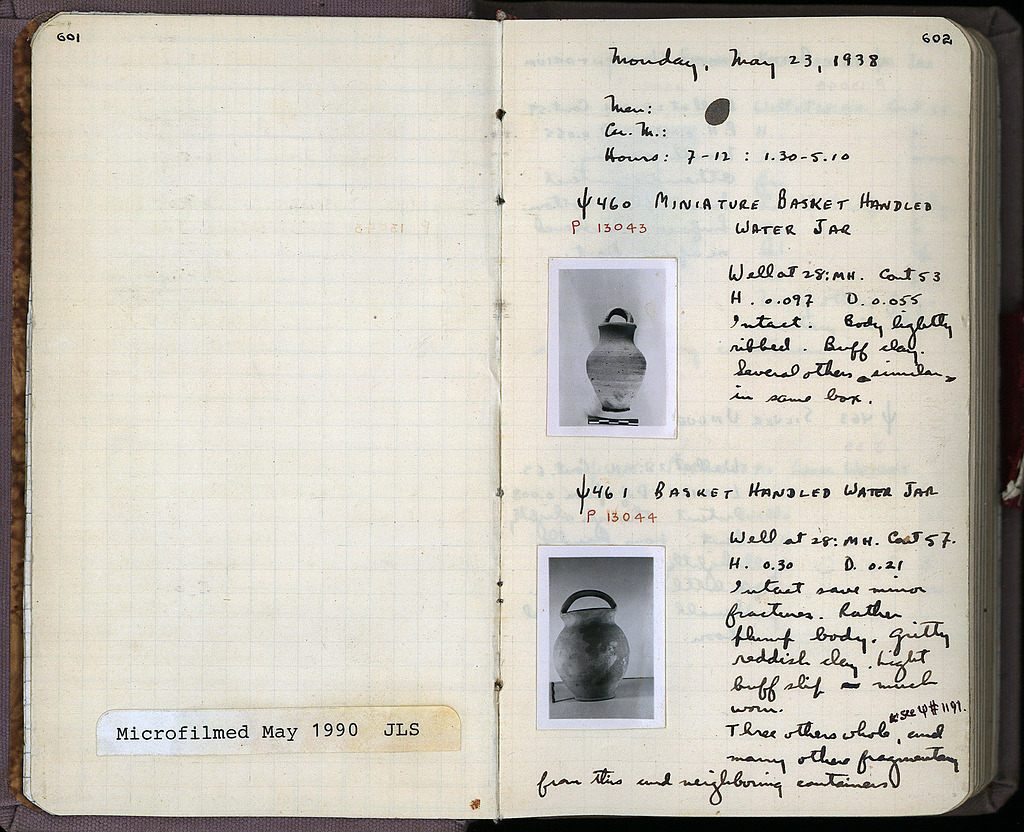 601
Microfilmed May 1990 JLS
602
Monday, May 23, 1938
Men:
Car. M.:
Hours: 7-12 : 1.30-5.10
ψ460 MINIATURE BASKET HANDLED
P 13043 WATER JAR
Well at 28:MH. Cont 53
H. 0.097 D. 0.055
Intact. Body lightly
ribbed. Buff clay.
Several others similar
in same box.
ψ461 BASKET HANDLED WATER JAR
P 13044
Well at 28:MH. Cont 57.
H. 0.30 D. 0.21
Intact save minor
fractures. Rather
plump body. Gritty
reddish clay. Light
buff slip — much
worn.
* see ψ# 1191.
Three others whole, and
many others fragmentary
from this and neighboring containers